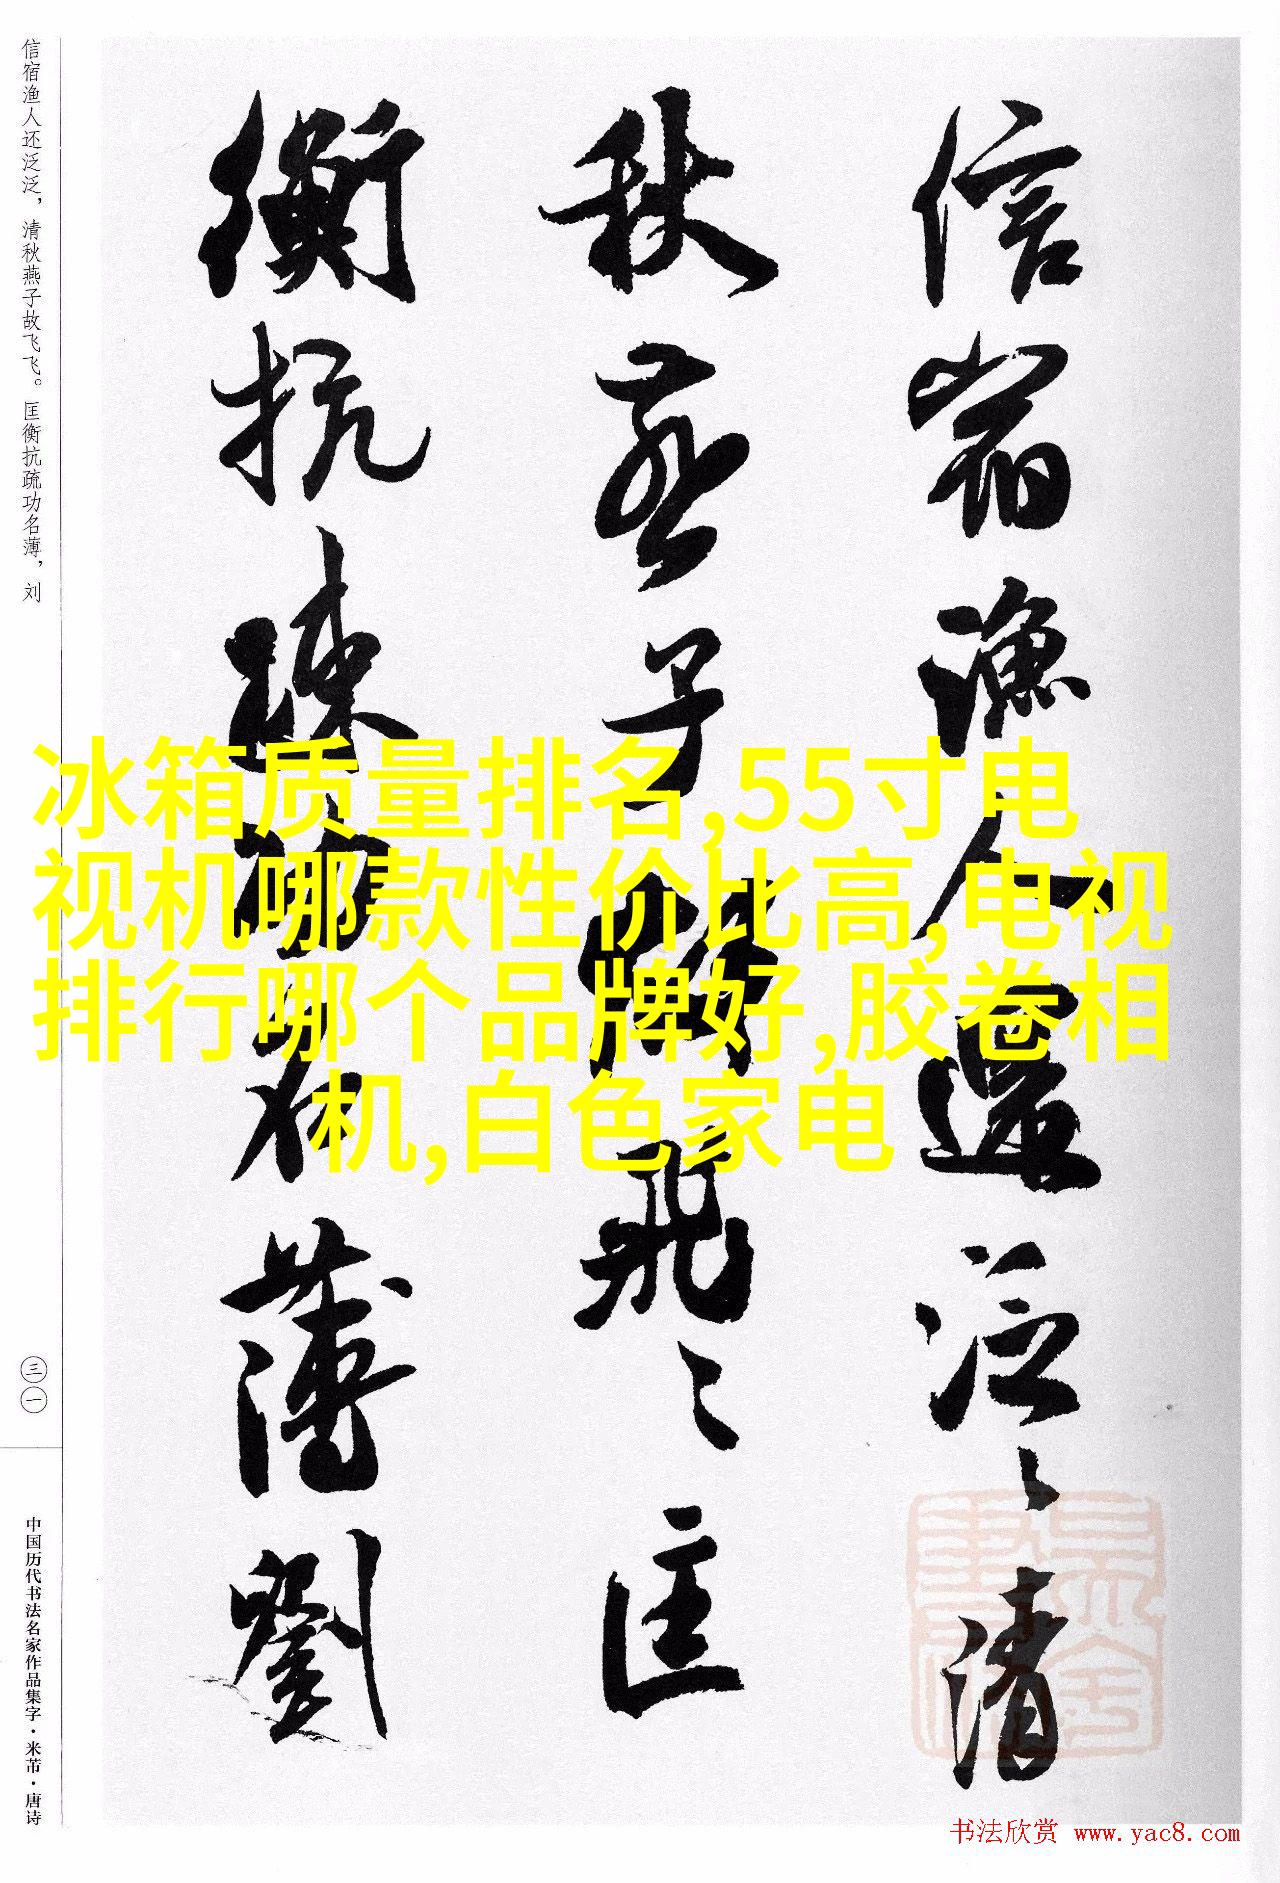 信宿渔人还泛泛，清秋燕子故飞飞。匡衡抗疏功名薄，刘
信宿漁人還泛〻清
秋燕子故飛〻匡
衡抗疏功名薄劉
冰箱质量排名,55寸电
视机哪款性价比高,电视
排行哪个品牌好,胶卷相
机,白色家电
三一
中国历代书法名家作品集字·米芾·唐诗
书法欣赏 www.yac8.com